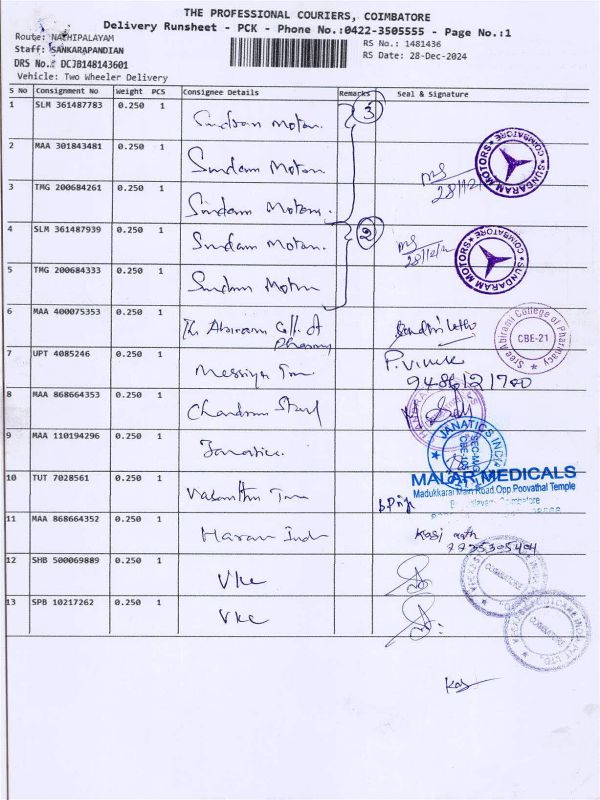 THE PROFESSIONAL COURIERS, COIMBATORE
Delivery Runsheet - PCK - Phone No.:0422-3505555 - Page No.:1
Route: NACHIPALAYAM
RS No.: 1481436
Staff: SANKARAPANDIAN
RS Date: 28-Dec-2024
DRS No.: DCJB148143601
Vehicle: Two Wheeler Delivery
S No Consignment No Weight PCS Consignee Details Remarks Seal & Signature
1 SLM 361487783 0.250 1 Sundram Motors. 3
2 MAA 301843481 0.250 1 Sundram Motors. 28/12/
SUNDARAM MOTORS COIMBATORE
3 TMG 200684261 0.250 1 Sundram Motors.
4 SLM 361487939 0.250 1 Sundram Motors. 2 28/12/
SUNDARAM MOTORS COIMBATORE
5 TMG 200684333 0.250 1 Sundram Motors
6 MAA 400075353 0.250 1 The Abirami Coll. of Pharmacy
Sree Abirami College of Pharmacy CBE-21
7 UPT 4085246 0.250 1 Messiya
9486121700
8 MAA 868664353 0.250 1 Chandran
9 MAA 110194296 0.250 1 Janatics.
JANATICS INDIA
10 TUT 7028561 0.250 1
MALAR MEDICALS
Madukkarai Main Road.Opp Poovathal Temple
11 MAA 868664352 0.250 1 Haran Ind
7735305404
12 SHB 500069889 0.250 1 VKC
COIMBATORE
13 SPB 10217262 0.250 1 VKC
COIMBATORE